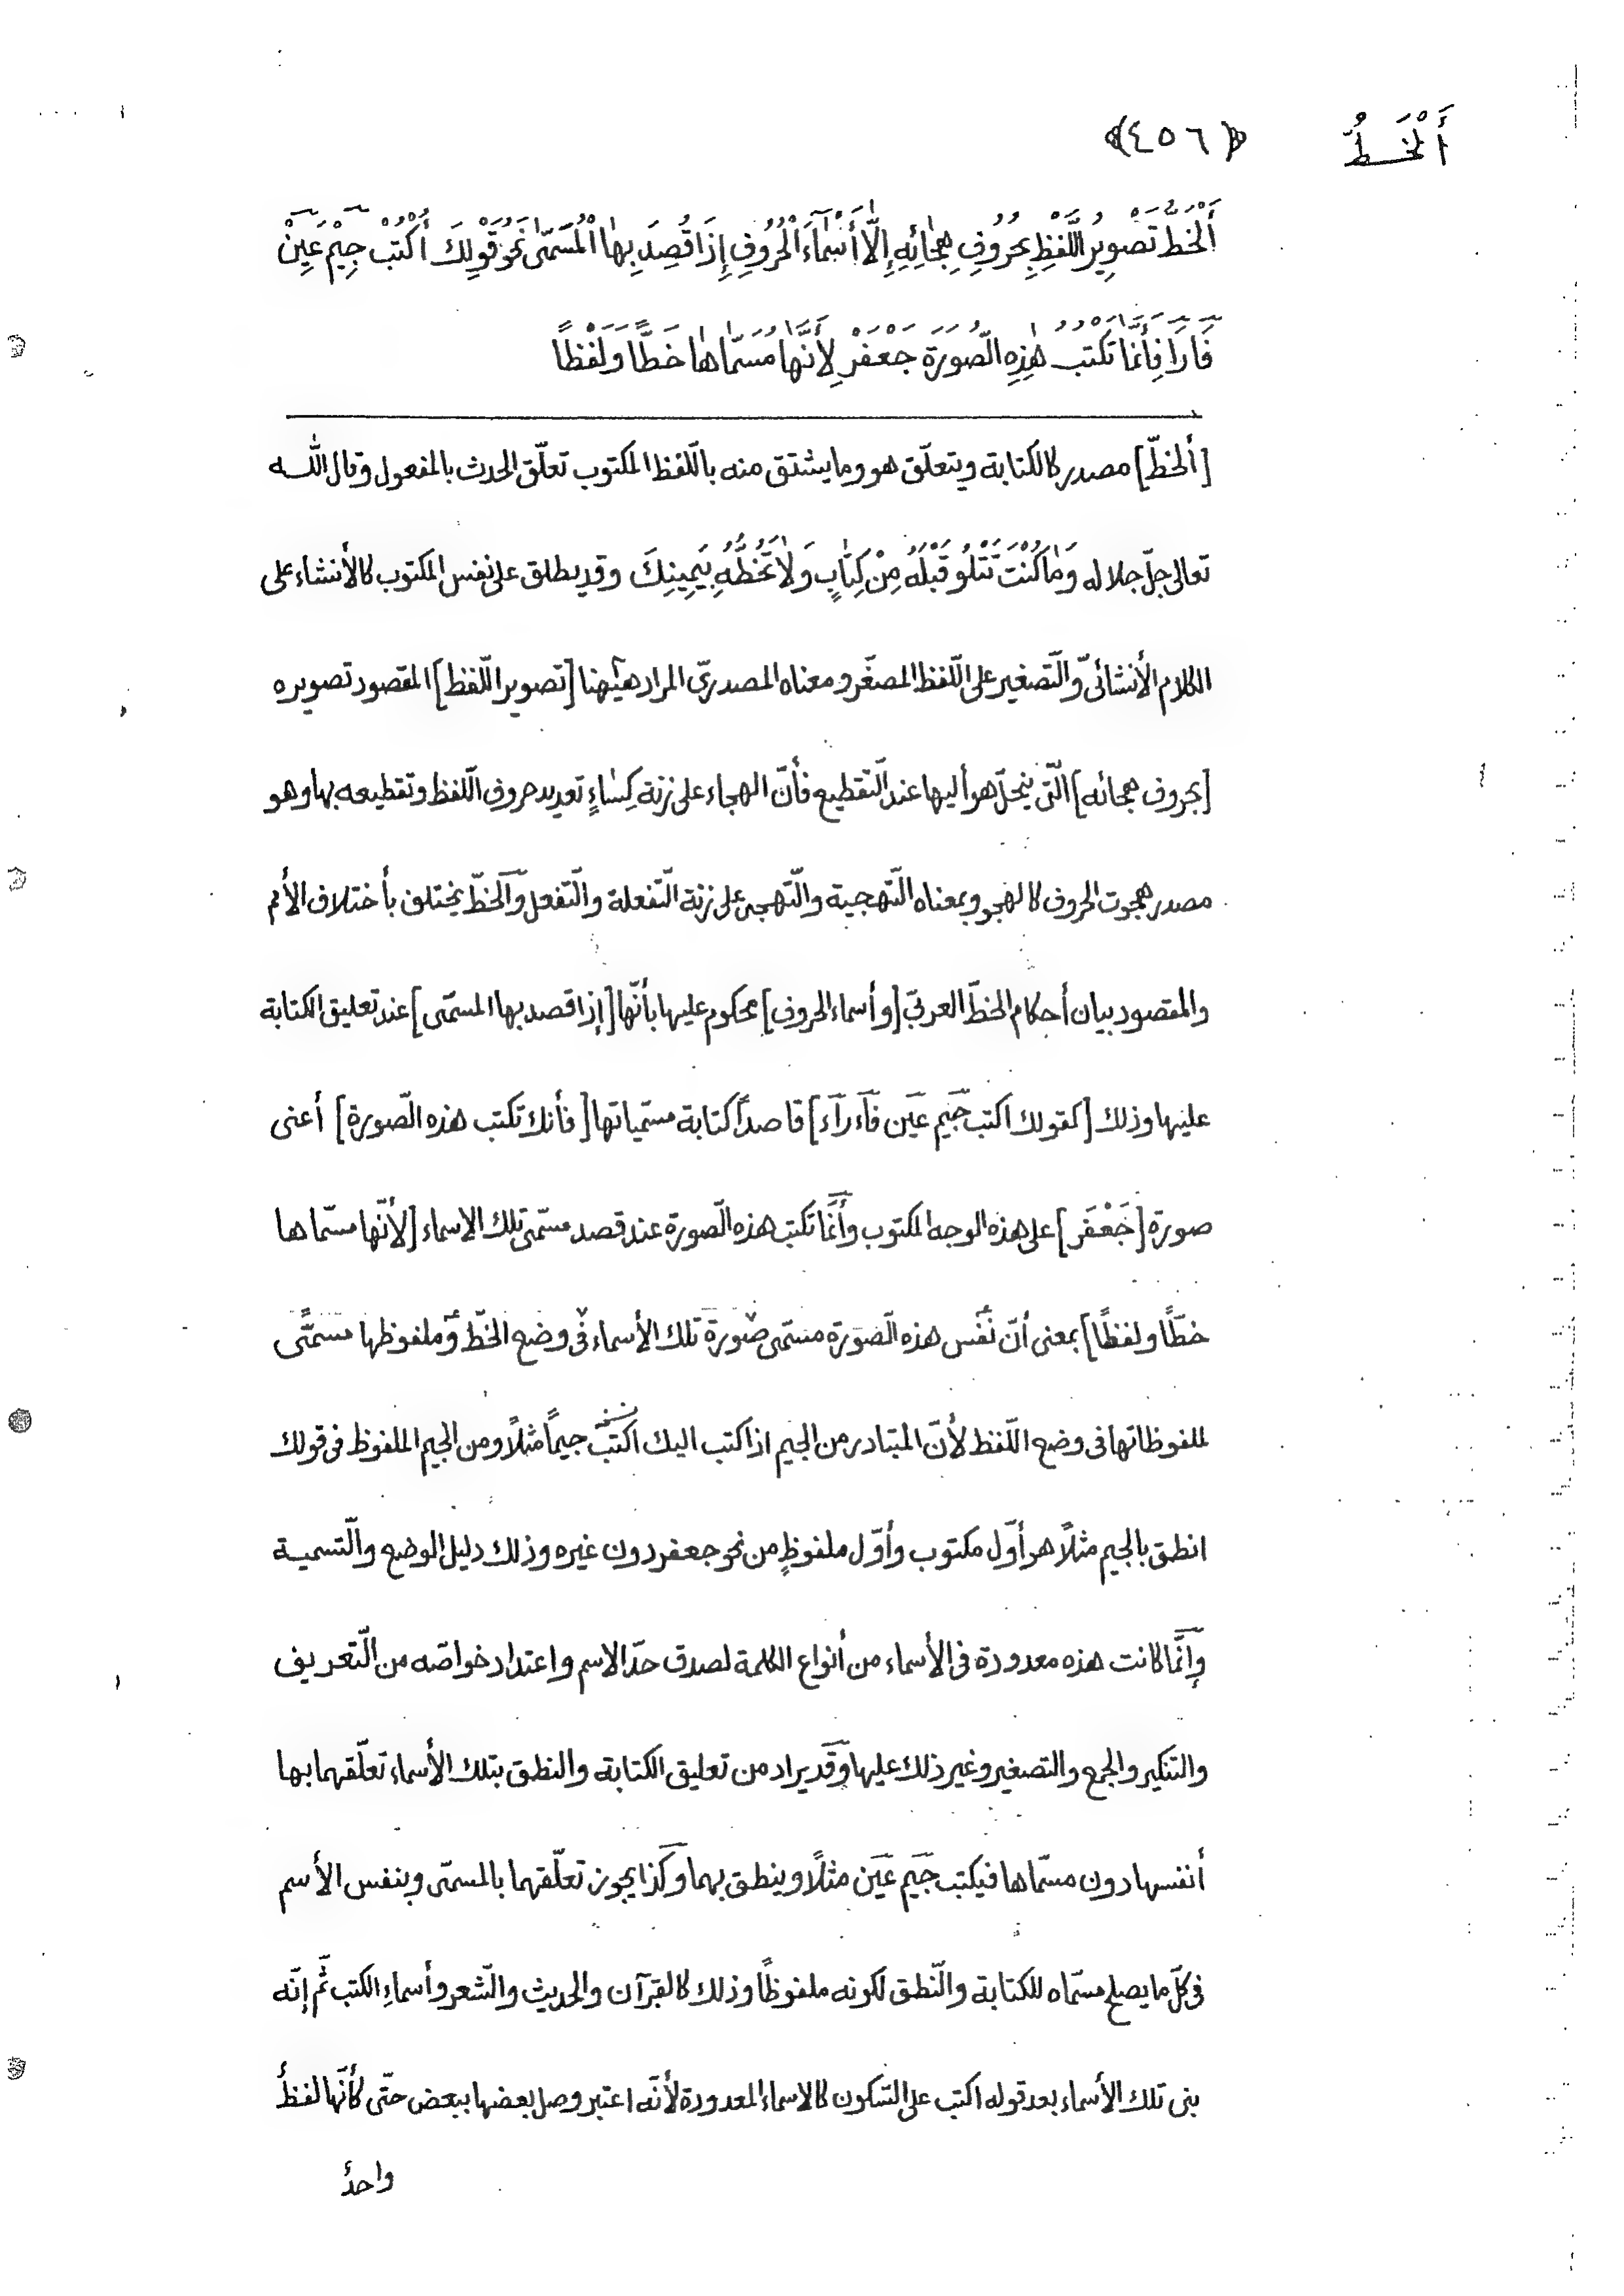 أَلْخَطُّ ﴿٤٥٦﴾
أَلْخَطُّ تَصْوِيرُ اللَّفْظِ بِحُرُوفِ هِجَائِهِ إِلَّا أَسْمَاءَ الْحُرُوفِ إِذَا قُصِدَ بِهَا الْمُسَمَّىٰ نَحْوُ قَوْلِكَ أُكْتُبْ جِيْمْ عَيْنْ
فَا رَا فَأَنَّمَا تَكْتُبُ هٰذِهِ الصُّورَةَ جَعْفَرْ لِأَنَّهَا مُسَمَّاهَا خَطًّا وَلَفْظاً
[ألخطّ] مصدر كالكتابة ويتعلّق هو وما يشتق منه باللّفظ المكتوب تعلّق الحدث بالمفعول وقال اللّه
تعالى جلّ جلاله وَمَا كُنْتَ تَتْلُو قَبْلَهُ مِنْ كِتَابٍ وَلَا تَخُطُّهُ بِيَمِينِكَ وقد يطلق على نفس المكتوب كالأنشاء على
الكلام الأنشائىّ والتّصغير على اللّفظ المصغّر ومعناه المصدرىّ المراد هيهنا [تصوير اللّفظ] المقصود تصويره
[بحروف هجائه] الّتى ينحلّ هو أليها عند التّقطيع فأنّ الهجاء على زنة كِسَاءٍ تعديد حروف اللّفظ وتقطيعه بها وهو
مصدر هجوت الحروف كالهجو وبمعناه التّهجية والتّهجى على زنة التّفعلة والتّفعل والخطّ يختلف بأختلاف الأمم
والمقصود بيان أحكام الخطّ العربىّ [وأسماء الحروف] محكوم عليها بأنّها [إذا قصد بها المسمّى] عند تعليق الكتابة
عليها وذلك [كقولك اكتب جيم عين فاء راء] قاصداً كتابة مسمّياتها [فأنك تكتب هذه الصّورة] أعنى
صورة [جَعْفَر] على هذه الوجه المكتوب وأنّما تكتب هذه الصّورة عند قصد مسمّى تلك الاسماء [لأنّها مسمّاها
خطّا ولفظًا] بمعنى أنّ نفس هذه الصّورة مسمّى صورة تلك الأسماء فى وضع الخطّ وملفوظها مسمَّى
لملفوظاتها فى وضع اللّفظ لأنّ المتبادر من الجيم اذا كتب اليك اكتب جيماً مثلاً ومن الجيم الملفوظ فى قولك
انطق بالجيم مثلاً هو أوّل مكتوب وأوّل ملفوظٍ من نحو جعفر دون غيره وذلك دليل الوضع والتّسمية
وإنّما كانت هذه معدودة فى الأسماء من أنواع الكلمة لصدق حدّ الاسم واعتداد خواصّه من التّعريف
والتنكير والجمع والتصغير وغير ذلك عليها وقد يراد من تعليق الكتابة والنطق بتلك الأسماء تعلّقهما بها
أنفسها دون مسمّاها فيكتب جيم عين مثلاً وينطق بهما وكذا يجوز تعلّقهما بالمسمّى وبنفس الأسم
فى كلّ ما يصلح مسمّاه للكتابة والنّطق لكونه ملفوظاً وذلك كالقرآن والحديث والشّعر وأسماءِ الكتب ثمّ إنّه
بنى تلك الأسماء بعد قوله اكتب على السّكون كالاسماء المعدودة لأنّه اعتبر وصل بعضها ببعض حتّى كأنّها لفظٌ
واحدٌ